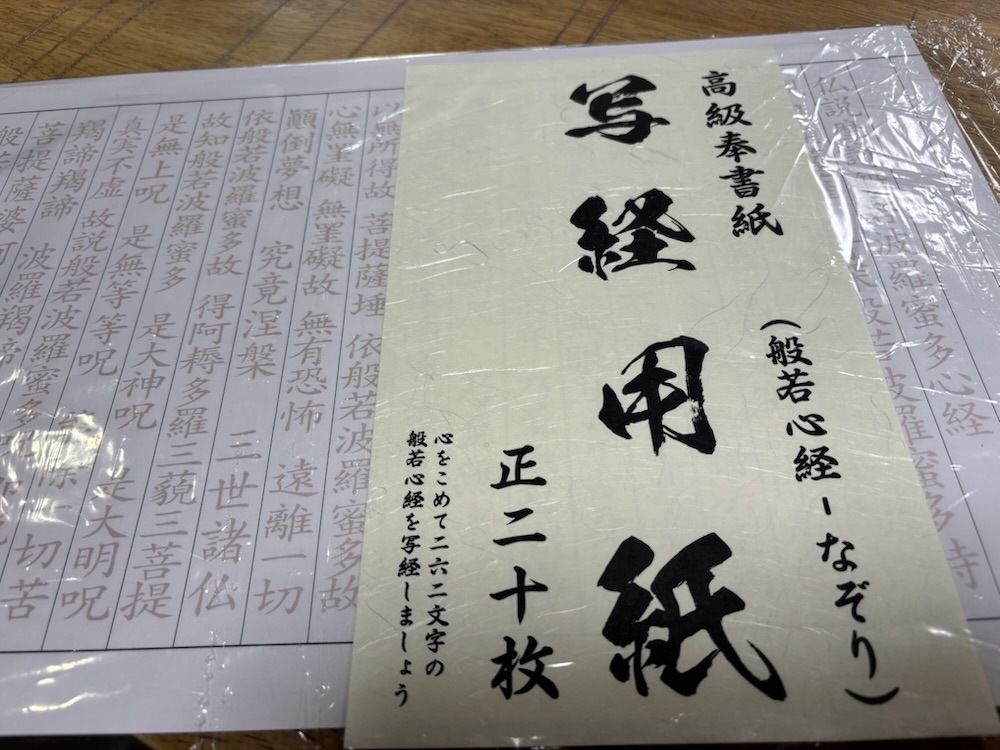 高級奉書紙
写経用紙
（般若心経ーなぞり）
正二十枚
心をこめて二六二文字の
般若心経を写経しましょう
波羅蜜多心経
無所得故 菩提薩埵 依般若波羅蜜多故
心無罣礙 無罣礙故 無有恐怖 遠離一切
顛倒夢想 究竟涅槃 三世諸仏
依般若波羅蜜多故 得阿耨多羅三藐三菩提
故知般若波羅蜜多 是大神呪 是大明呪
是無上呪 是無等等呪 切苦
真実不虚 故説般若波羅蜜多
羯諦羯諦 波羅羯諦
菩提薩婆訶
般若